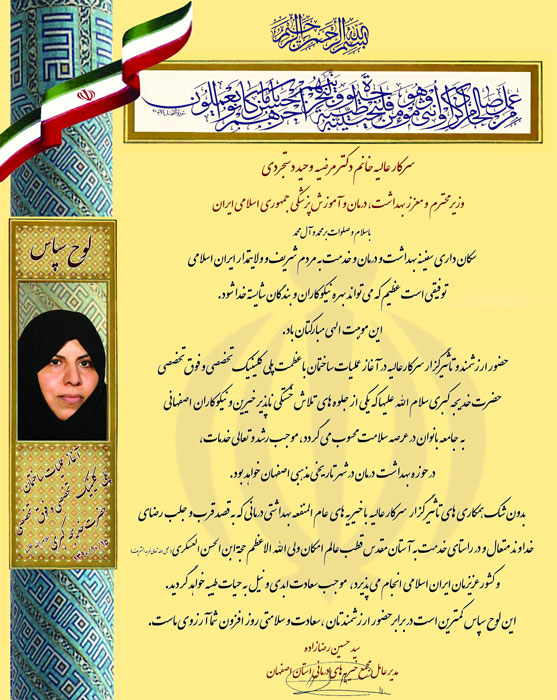 بسم الله الرحمن الرحیم
من عمل صالحا من ذکر او انثی و هو مومن فلنحیینه حیوة طیبة و لنجزینهم اجرهم باحسن ما کانوا یعملون
سرکار عالیه خانم دکتر مرضیه وحید دستجردی
وزیر محترم و معزز بهداشت، درمان و آموزش پزشکی جمهوری اسلامی ایران
با سلام و صلوات بر محمد و آل محمد
سکان داری سفینه بهداشت و درمان و خدمت به مردم شریف و ولایتمدار ایران اسلامی
توفیقی است عظیم که می تواند بهره نیکوکاران و بندگان شایسته خدا شود.
این موهبت الهی مبارکتان باد.
حضور ارزشمند و تأثیرگزار سرکار عالیه در آغاز عملیات ساختمان با عظمت پلی کلینیک تخصصی و فوق تخصصی
حضرت خدیجه کبری سلام الله علیها که یکی از جلوه های تلاش خستگی ناپذیر خیرین و نیکوکاران اصفهانی
به جامعه بانوان در عرصه سلامت محسوب می گردد، موجب رشد و تعالی خدمات،
در حوزه بهداشت درمان در شهر تاریخی مذهبی اصفهان خواهد بود.
بدون شک همکاری های تأثیرگزار سرکار عالیه با خیریه های عام المنفعه بهداشتی درمانی که به قصد قرب و جلب رضای
خداوند متعال و در راستای خدمت به آستان مقدس قطب عالم امکان ولی الله الاعظم حجة ابن الحسن العسکری
و کشور عزیزمان ایران اسلامی انجام می پذیرد، موجب سعادت ابدی و نیل به حیات طیبه خواهد گردید.
این لوح سپاس کمترین است در برابر حضور ارزشمندتان، سعادت و سلامتی روز افزون شما آرزوی ماست.
سید حسین رضازاده
مدیر عامل مجمع خیریه های درمانی استان اصفهان
لوح سپاس
آغاز عملیات ساختمان
پلی کلینیک تخصصی و فوق تخصصی
حضرت خدیجه کبری